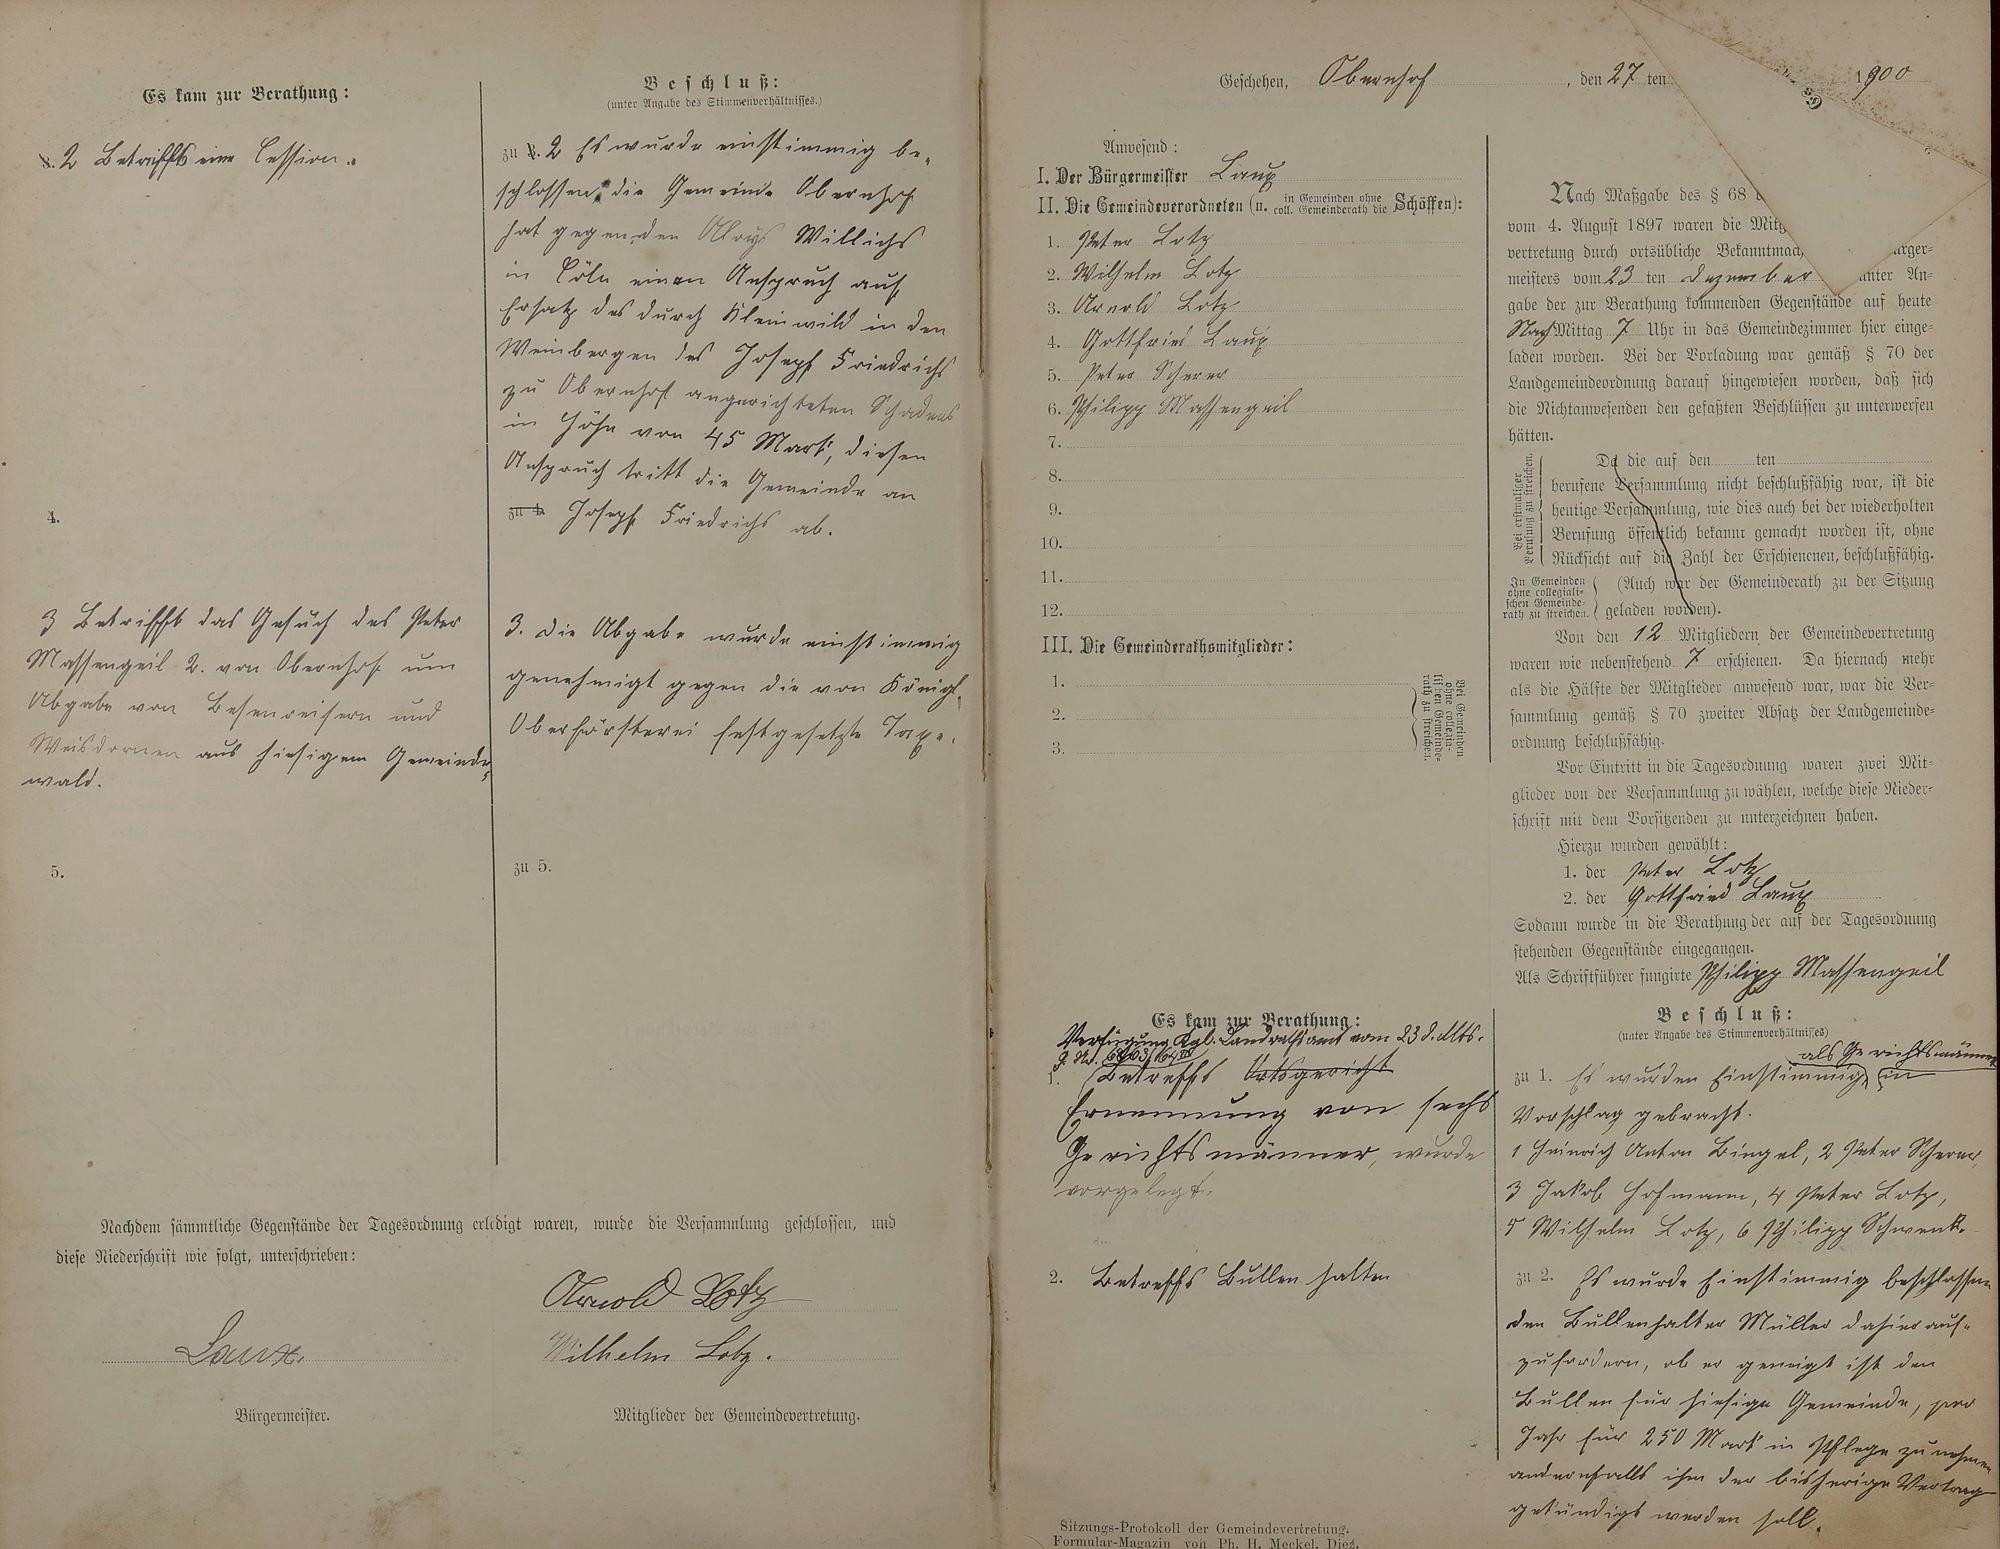 Es kam zur Berathung:
2 Betrifft eine Cession.
4.
3 Betrifft das Gesuch des Peter
Massengeil 2. von Obernhof um
Abgabe von Besenreisern und
Weisdornen aus hiesigem Gemeinde-
wald.
5.
Beschluß:
(unter Angabe des Stimmenverhältnisses.)
zu 2 Es wurde einstimmig be-
schlossen die Gemeinde Obernhof
hat gegen den Aloys Willichs
in Cöln einen Anspruch auf
Ersatz des durch Kleinwild in den
Weinbergen des Joseph Friedrichs
zu Obernhof angerichteten Schadens
in Höhe von 45 Mark, diesen
Anspruch tritt die Gemeinde an
zu 4. Joseph Friedrichs ab.
3. Die Abgabe wurde einstimmig
genehmigt gegen die von Königl.
Oberförsterei festgesetzte Taxe.
zu 5.
Nachdem sämmtliche Gegenstände der Tagesordnung erledigt waren, wurde die Versammlung geschlossen, und
diese Niederschrift wie folgt, unterschrieben:
Arnold Lotz
Laux. Wilhelm Lotz.
Bürgermeister. Mitglieder der Gemeindevertretung.
Geschehen, Obernhof, den 27 ten 1900
Anwesend:
I. Der Bürgermeister Laux
II. Die Gemeindeverordneten (u. in Gemeinden ohne coll. Gemeinderath die Schöffen):
1. Peter Lotz
2. Wilhelm Lotz
3. Arnold Lotz
4. Gottfried Laux
5. Peter Scherer
6. Philipp Massengeil
7.
8.
9.
10.
11.
12.
III. Die Gemeinderathsmitglieder:
1.
2.
3.
Bei Gemeinden
ohne collegia-
lischen Gemeinde-
rath zu streichen.
Nach Maßgabe des § 68
vom 4. August 1897 waren die
vertretung durch ortsübliche
meisters vom 23 ten Dezember unter An-
gabe der zur Berathung kommenden Gegenstände auf heute
Nach Mittag 7 Uhr in das Gemeindezimmer hier einge-
laden worden. Bei der Vorladung war gemäß § 70 der
Landgemeindeordnung darauf hingewiesen worden, daß sich
die Nichtanwesenden den gefaßten Beschlüssen zu unterwerfen
hätten.
Bei erstmaliger
Berufung zu streichen.
Da die auf den ten
berufene Versammlung nicht beschlußfähig war, ist die
heutige Versammlung, wie dies auch bei der wiederholten
Berufung öffentlich bekannt gemacht worden ist, ohne
Rücksicht auf die Zahl der Erschienenen, beschlußfähig.
In Gemeinden
ohne collegiali-
schen Gemeinde-
rath zu streichen.
(Auch war der Gemeinderath zu der Sitzung
geladen worden).
Von den 12 Mitgliedern der Gemeindevertretung
waren wie nebenstehend 7 erschienen. Da hiernach mehr
als die Hälfte der Mitglieder anwesend war, war die Ver-
sammlung gemäß § 70 zweiter Absatz der Landgemeinde-
ordnung beschlußfähig.
Vor Eintritt in die Tagesordnung waren zwei Mit-
glieder von der Versammlung zu wählen, welche diese Nieder-
schrift mit dem Vorsitzenden zu unterzeichnen haben.
Hierzu wurden gewählt:
1. der Peter Lotz
2. der Gottfried Laux
Sodann wurde in die Berathung der auf der Tagesordnung
stehenden Gegenstände eingegangen.
Als Schriftführer fungirte Philipp Massengeil
Es kam zur Berathung:
Verfügung Kgl. Landrathsamt vom 23 d. Mts.
J. Nr.
1. Betreffs Ortsgericht
Ernennung von sechs
Gerichtsmänner, wurde
vorgelegt.
2. Betreffs Bullen halten
Beschluß:
(unter Angabe des Stimmenverhältnisses)
als Gerichtsmänner
zu 1. Es wurden Einstimmig in
Vorschlag gebracht.
1 Heinrich Anton Bingel, 2 Peter Scherer,
3 Jakob Hofmann, 4 Peter Lotz,
5 Wilhelm Lotz, 6 Philipp Schwenk.
zu 2. Es wurde Einstimmig beschlossen
den Bullenhalter Müller dahier auf-
zufordern, ob er geneigt ist den
Bullen für hiesige Gemeinde, pro
Jahr für 250 Mark in Pflege zu nehmen
andernfalls ihm der bisherige Vertrag
gekündigt werden soll.
Sitzungs-Protokoll der Gemeindevertretung.
Formular-Magazin von Ph. H. Meckel, Diez.